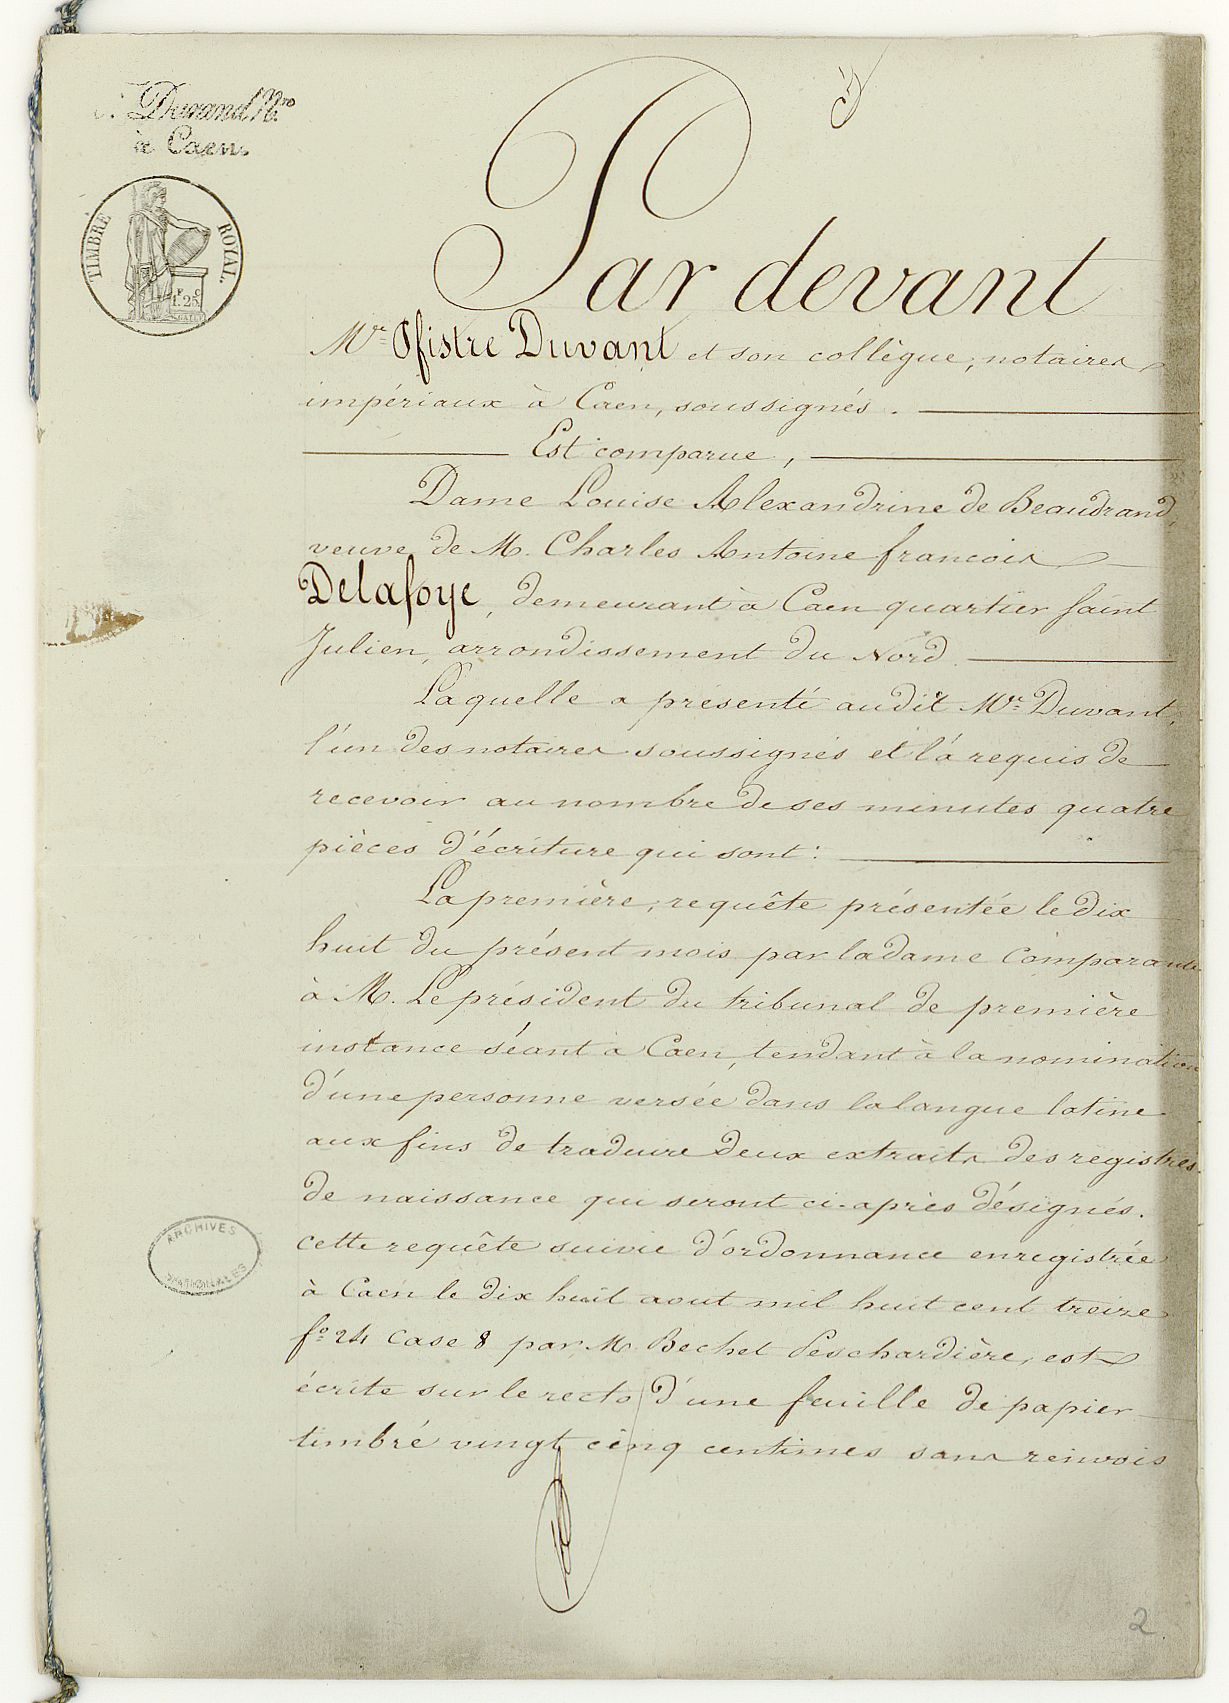 Durand N.re
à Caen.
TIMBRE ROYAL.
1F. 25C
Par devant
Mre Ofistre Duvant et son collègue, notaires
impériaux à Caen, soussignés.
Est comparue,
Dame Louise Alexandrine de Beaudrand,
veuve de M. Charles Antoine francois
Delafoye, demeurant à Caen quartier Saint
Julien, arrondissement du Nord.
Laquelle a présenté audit Mre Duvant,
l'un des notaires soussignés et l'a requis de
recevoir au nombre de ses minutes quatre
pièces d'écriture qui sont :
La première, requête présentée le dix
huit du présent mois par la dame Comparante
à M. Le président du tribunal de première
instance séant à Caen, tendant à la nomination
d'une personne versée dans la langue latine
aux fins de traduire deux extraits des registres
de naissance qui seront ci-après désignés.
cette requête suivie d'ordonnance enregistrée
à Caen le dix huit aout mil huit cent treize
fo 24 case 8 par M. Bechet Leschardière, est
écrite sur le recto d'une feuille de papier
timbré vingt cinq centimes sans renvois
ARCHIVES
NATIONALES
2